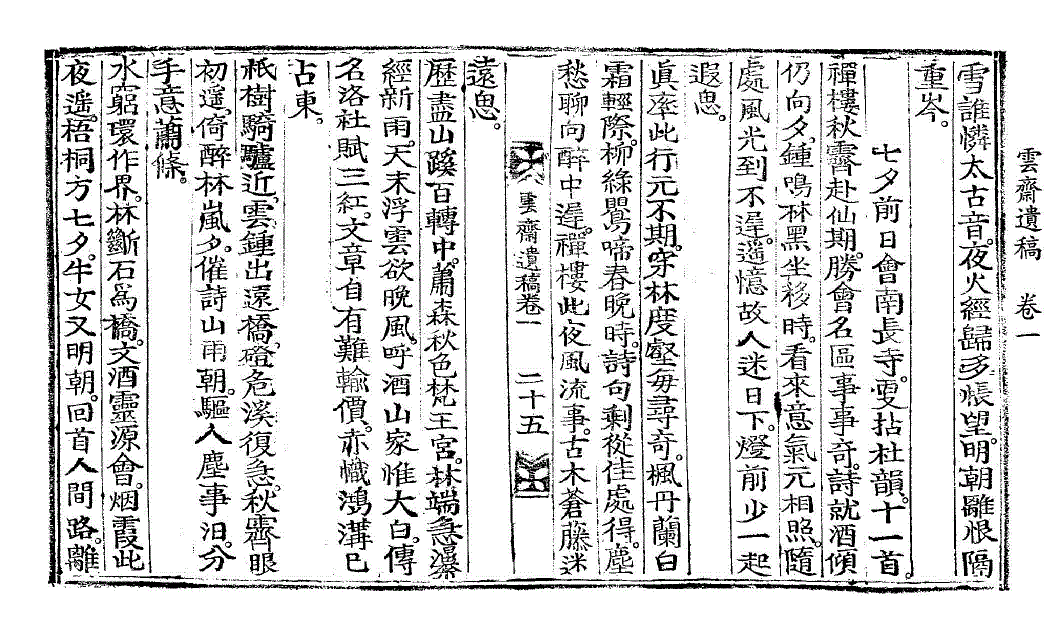 雲齋遺稿　卷一
雪誰憐太古音。夜火經歸多悵望。明朝離恨隔
重岑。
七夕前日會南長寺。更拈杜韻。十一首。
禪樓秋霽赴仙期。勝會名區事事奇。詩就酒傾
仍向夕。鍾鳴林黑坐移時。看來意氣元相照。隨
處風光到不遲。遥憶故人迷日下。燈前少一起
遐思。
眞率此行元不期。穿林度壑每尋奇。楓丹蘭白
霜輕際。柳綠鸎啼春晚時。詩句剩從佳處得。塵
愁聊向醉中遲。禪樓此夜風流事。古木蒼藤迷
遠思。
雲齋遺稿卷一　二十五
歷盡山蹊百轉中。蕭森秋色梵王宮。林端急瀑
經新雨。天末浮雲欲晚風。呼酒山家惟大白。傳
名洛社賦三紅。文章自有難輸價。赤幟鴻溝已
占東。
祇樹騎驢近。雲鍾出遠橋。磴危溪復急。秋霽眼
初遥。倚醉林嵐夕。催詩山雨朝。驅人塵事汨。分
手意蕭條。
水窮環作界。林斷石爲橋。文酒靈源會。烟霞此
夜遥。梧桐方七夕。牛女又明朝。回首人間路。離